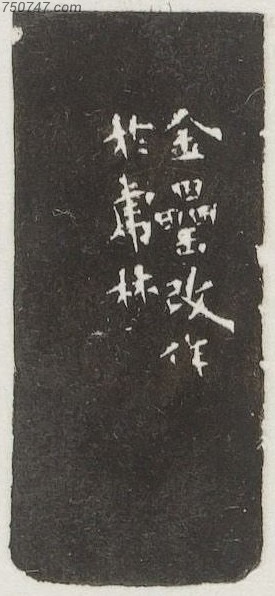 750747.com
金罍改作
於虎林